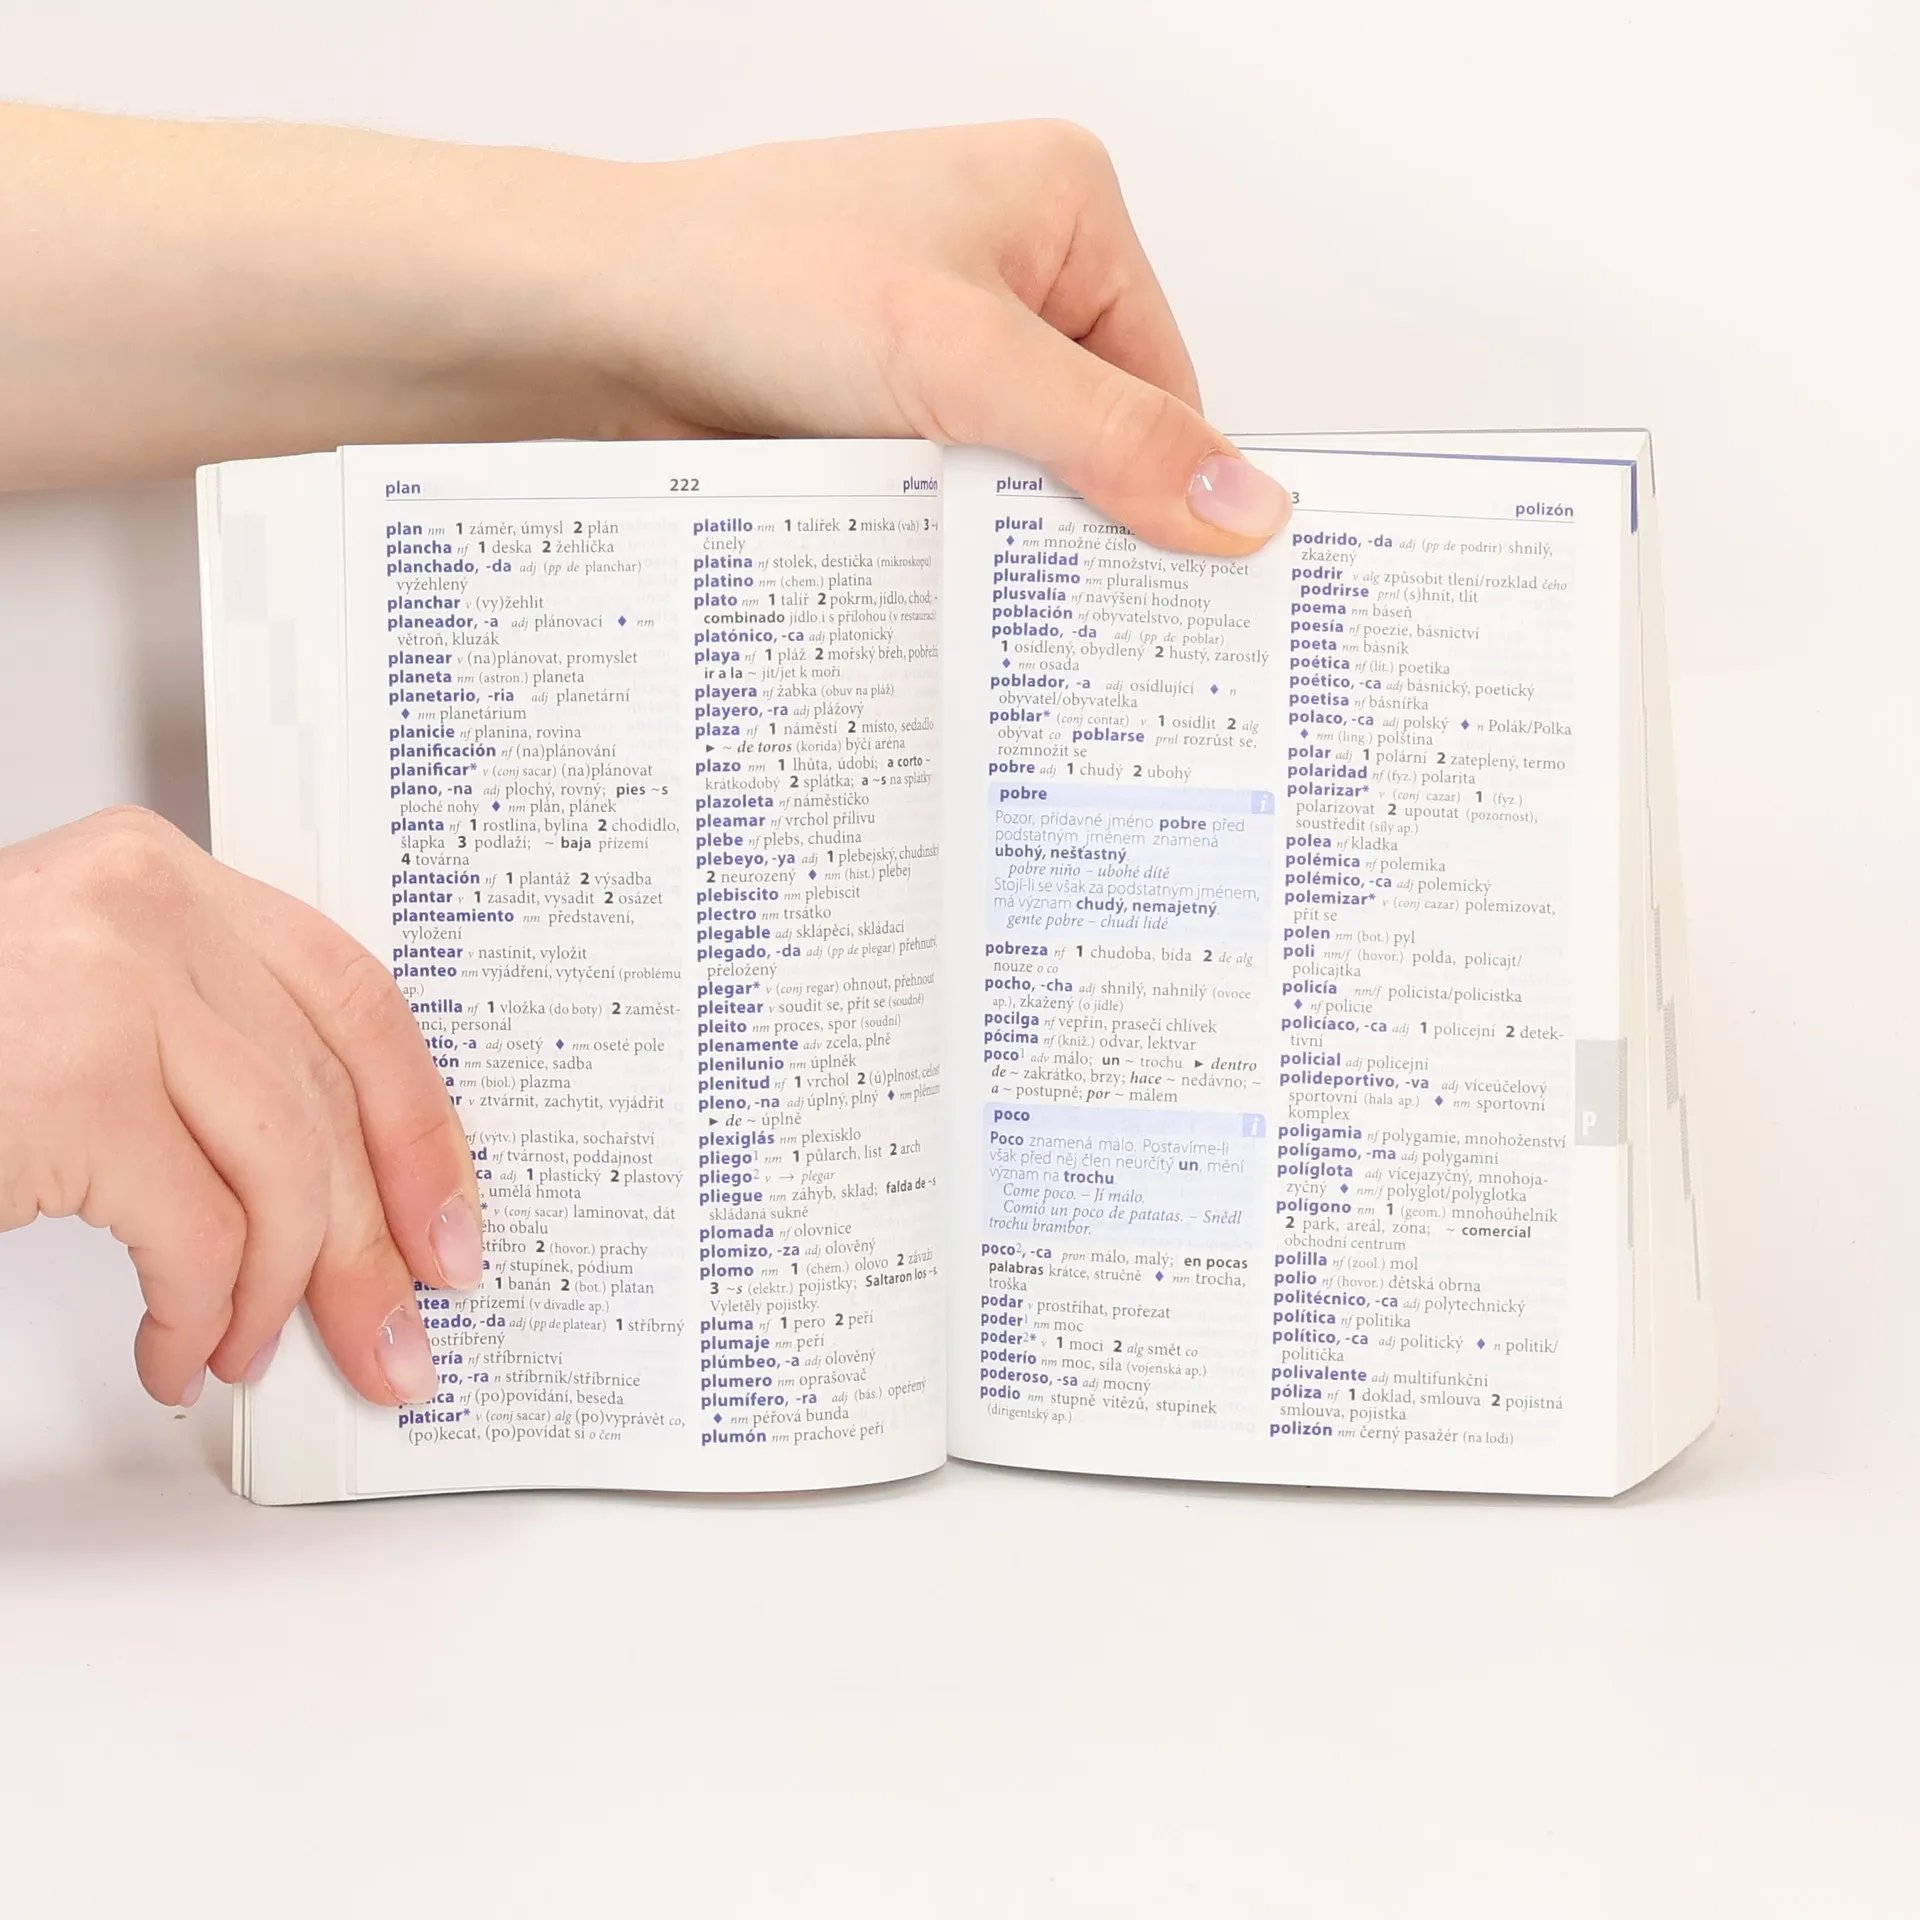 plan 222 plumón
plan nm 1 záměr, úmysl 2 plán
plancha nf 1 deska 2 žehlička
planchado, -da adj (pp de planchar)
vyžehlený
planchar v (vy)žehlit
planeador, -a adj plánovací ♦ nm
větroň, kluzák
planear v (na)plánovat, promyslet
planeta nm (astron.) planeta
planetario, -ria adj planetární
♦ nm planetárium
planicie nf planina, rovina
planificación nf (na)plánování
planificar* v (conj sacar) (na)plánovat
plano, -na adj plochý, rovný; pies ~s
ploché nohy ♦ nm plán, plánek
planta nf 1 rostlina, bylina 2 chodidlo,
šlapka 3 podlaží; ~ baja přízemí
4 továrna
plantación nf 1 plantáž 2 výsadba
plantar v 1 zasadit, vysadit 2 osázet
planteamiento nm představení,
vyložení
plantear v nastínit, vyložit
planteo nm vyjádření, vytyčení (problému
ap.)
antilla nf 1 vložka (do boty) 2 zaměst-
nci, personál
ntío, -a adj osetý ♦ nm oseté pole
tón nm sazenice, sadba
a nm (biol.) plazma
ar v ztvárnit, zachytit, vyjádřit
nf (výtv.) plastika, sochařství
ad nf tvárnost, poddajnost
ca adj 1 plastický 2 plastový
, umělá hmota
* v (conj sacar) laminovat, dát
ého obalu
stříbro 2 (hovor.) prachy
a nf stupínek, pódium
1 banán 2 (bot.) platan
atea nf přízemí (v divadle ap.)
teado, -da adj (pp de platear) 1 stříbrný
postříbřený
ería nf stříbrnictví
ero, -ra n stříbrník/stříbrnice
ica nf (po)povídání, beseda
platicar* v (conj sacar) alg (po)vyprávět co,
(po)kecat, (po)povídat si o čem
platillo nm 1 talířek 2 miska (vah) 3 ~s
činely
platina nf stolek, destička (mikroskopu)
platino nm (chem.) platina
plato nm 1 talíř 2 pokrm, jídlo, chod; ~
combinado jídlo i s přílohou (v restauraci)
platónico, -ca adj platonický
playa nf 1 pláž 2 mořský břeh, pobřeží;
ir a la ~ jít/jet k moři
playera nf žabka (obuv na pláž)
playero, -ra adj plážový
plaza nf 1 náměstí 2 místo, sedadlo
► ~ de toros (korida) býčí aréna
plazo nm 1 lhůta, údobí; a corto ~
krátkodobý 2 splátka; a ~s na splátky
plazoleta nf náměstíčko
pleamar nf vrchol přílivu
plebe nf plebs, chudina
plebeyo, -ya adj 1 plebejský, chudinský
2 neurozený ♦ nm (hist.) plebej
plebiscito nm plebiscit
plectro nm trsátko
plegable adj sklápěcí, skládací
plegado, -da adj (pp de plegar) přehnutý,
přeložený
plegar* v (conj regar) ohnout, přehnout
pleitear v soudit se, přít se (soudně)
pleito nm proces, spor (soudní)
plenamente adv zcela, plně
plenilunio nm úplněk
plenitud nf 1 vrchol 2 (ú)plnost, celost
pleno, -na adj úplný, plný ♦ nm plénum
► de ~ úplně
plexiglás nm plexisklo
pliego¹ nm 1 půlarch, list 2 arch
pliego² v → plegar
pliegue nm záhyb, sklad; falda de ~s
skládaná sukně
plomada nf olovnice
plomizo, -za adj olověný
plomo nm 1 (chem.) olovo 2 závaží
3 ~s (elektr.) pojistky; Saltaron los ~s.
Vyletěly pojistky.
pluma nf 1 pero 2 peří
plumaje nm peří
plúmbeo, -a adj olověný
plumero nm oprašovač
plumífero, -ra adj (bás.) opeřený
♦ nm péřová bunda
plumón nm prachové peří
plural 3 polizón
plural adj rozma
♦ nm množné číslo
pluralidad nf množství, velký počet
pluralismo nm pluralismus
plusvalía nf navýšení hodnoty
población nf obyvatelstvo, populace
poblado, -da adj (pp de poblar)
1 osídlený, obydlený 2 hustý, zarostlý
♦ nm osada
poblador, -a adj osídlující ♦ n
obyvatel/obyvatelka
poblar* (conj contar) v 1 osídlit 2 alg
obývat co poblarse prnl rozrůst se,
rozmnožit se
pobre adj 1 chudý 2 ubohý
pobre i
Pozor, přídavné jméno pobre před
podstatným jménem znamená
ubohý, nešťastný.
pobre niño – ubohé dítě
Stojí-li se však za podstatným jménem,
má význam chudý, nemajetný.
gente pobre – chudí lidé
pobreza nf 1 chudoba, bída 2 de alg
nouze o co
pocho, -cha adj shnilý, nahnilý (ovoce
ap.), zkažený (o jídle)
pocilga nf vepřín, prasečí chlívek
pócima nf (kniž.) odvar, lektvar
poco¹ adv málo; un ~ trochu ► dentro
de ~ zakrátko, brzy; hace ~ nedávno; ~
a ~ postupně; por ~ málem
poco i
Poco znamená málo. Postavíme-li
však před něj člen neurčitý un, mění
význam na trochu.
Come poco. – Jí málo.
Comió un poco de patatas. – Snědl
trochu brambor.
poco², -ca pron málo, malý; en pocas
palabras krátce, stručně ♦ nm trocha,
troška
podar v prostříhat, prořezat
poder¹ nm moc
poder²* v 1 moci 2 alg smět co
poderío nm moc, síla (vojenská ap.)
poderoso, -sa adj mocný
podio nm stupně vítězů, stupínek
(dirigentský ap.)
podrido, -da adj (pp de podrir) shnilý,
zkažený
podrir v alg způsobit tlení/rozklad čeho
podrirse prnl (s)hnít, tlít
poema nm báseň
poesía nf poezie, básnictví
poeta nm básník
poética nf (lit.) poetika
poético, -ca adj básnický, poetický
poetisa nf básnířka
polaco, -ca adj polský ♦ n Polák/Polka
♦ nm (ling.) polština
polar adj 1 polární 2 zateplený, termo
polaridad nf (fyz.) polarita
polarizar* v (conj cazar) 1 (fyz.)
polarizovat 2 upoutat (pozornost),
soustředit (síly ap.)
polea nf kladka
polémica nf polemika
polémico, -ca adj polemický
polemizar* v (conj cazar) polemizovat,
přít se
polen nm (bot.) pyl
poli nm/f (hovor.) polda, policajt/
policajtka
policía nm/f policista/policistka
♦ nf policie
policíaco, -ca adj 1 policejní 2 detek-
tivní
policial adj policejní
polideportivo, -va adj víceúčelový
sportovní (hala ap.) ♦ nm sportovní
komplex
poligamia nf polygamie, mnohoženství
polígamo, -ma adj polygamní
políglota adj vícejazyčný, mnohoja-
zyčný ♦ nm/f polyglot/polyglotka
polígono nm 1 (geom.) mnohoúhelník
2 park, areál, zóna; ~ comercial
obchodní centrum
polilla nf (zool.) mol
polio nf (hovor.) dětská obrna
politécnico, -ca adj polytechnický
política nf politika
político, -ca adj politický ♦ n politik/
politička
polivalente adj multifunkční
póliza nf 1 doklad, smlouva 2 pojistná
smlouva, pojistka
polizón nm černý pasažér (na lodi)
P